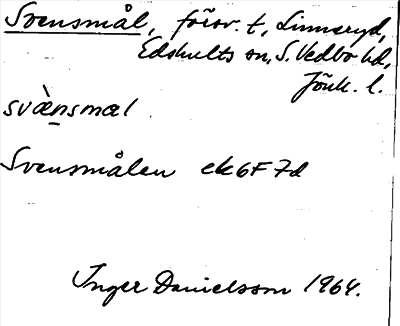 Svensmål, försv. t, Linneryd,
Edshults sn, S. Vedbo hd,
Jönk. l.
svä̀nsmal
Svensmålen ek 6F 7d
Inger Danielsson 1964.